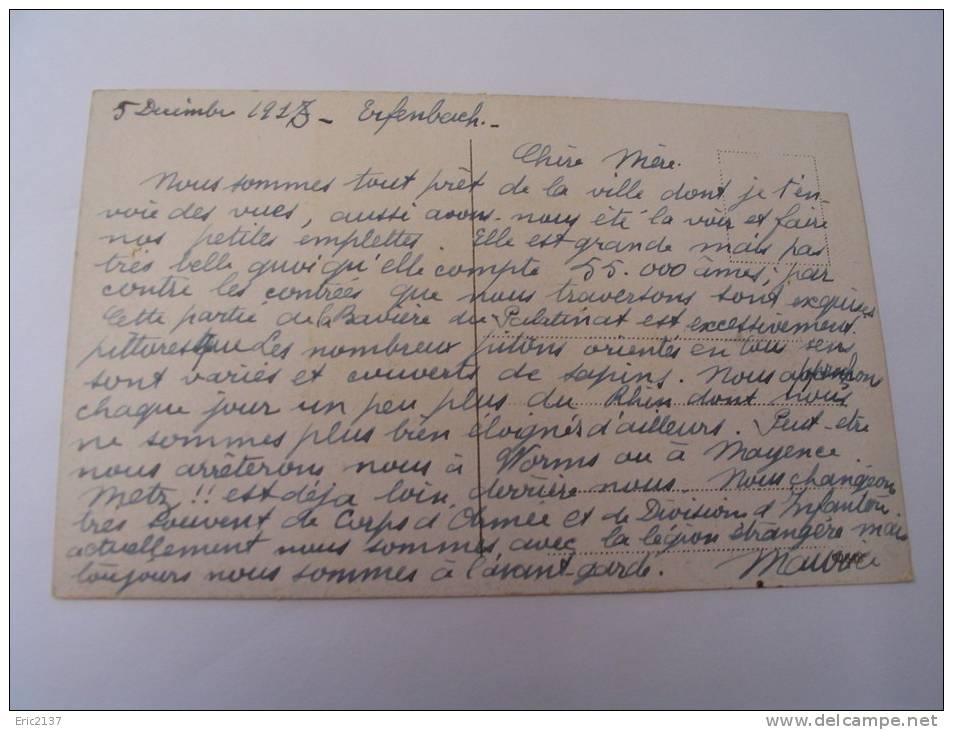 5 Décembre 191 - Erfenbach.-
Chère Mère.
Nous sommes tout prêt de la ville dont je t'en-
voie des vues, aussi avons-nous été la voir et faire
nos petites emplettes. Elle est grande mais pas
très belle quoiqu'elle compte 55.000 âmes; par
contre les contrées que nous traversons sont exquises
Cette partie de la Bavière du Palatinat est excessivement
pittoresque Les nombreux pitons orientés en tous sens
sont variés et couverts de sapins. Nous approchons
chaque jour un peu plus du Rhin dont nous
ne sommes plus bien éloignés d'ailleurs. Peut-etre
nous arrêterons nous à Worms ou à Mayence.
Metz!! est déja loin derrière nous. Nous changeons
très souvent de Corps d'Armée et de Division d'Infanterie
actuellement nous sommes avec la légion étrangère mais
toujours nous sommes à l'avant-garde. Maurice
Eric2137
www.delcampe.net